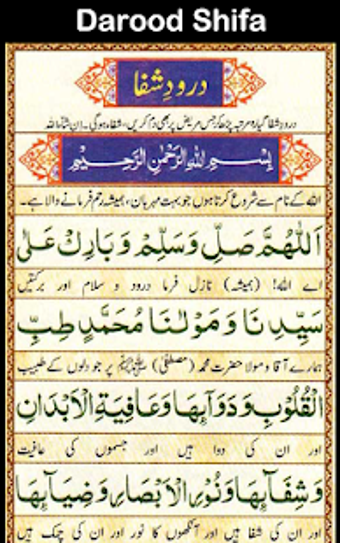 Darood Shifa
درودِ شفا
درودِ شفا گیارہ مرتبہ پڑھ کر جس مریض پر بھی دَم کریں، شفاء ہوگی۔ اِن شآءاللہ
بِسْمِ اللهِ الرَّحْمٰنِ الرَّحِيْمِ
اللہ کے نام سے شروع کرتا ہوں جو بہت مہربان، ہمیشہ رحم فرمانے والا ہے۔
اَللّٰهُمَّ صَلِّ وَسَلِّمْ وَبَارِكْ عَلٰى
اے اللہ! (ہمیشہ) نازل فرما درود و سلام اور برکتیں
سَيِّدِنَا وَمَوْلٰنَا مُحَمَّدٍ طِبِّ
ہمارے آقا و مولا حضرت محمد (مصطفٰی) ﷺ پر جو دلوں کے طبیب
الْقُلُوْبِ وَدَوَآىِٕهَا وَعَافِيَةِ الْاَبْدَانِ
اور ان کی دوا ہیں اور جسموں کی عافیت
وَشِفَآىِٕهَا وَنُوْرِ الْاَبْصَارِ وَضِيَآىِٕهَا
اور ان کی شفا ہیں اور آنکھوں کا نور اور ان کی چمک ہیں